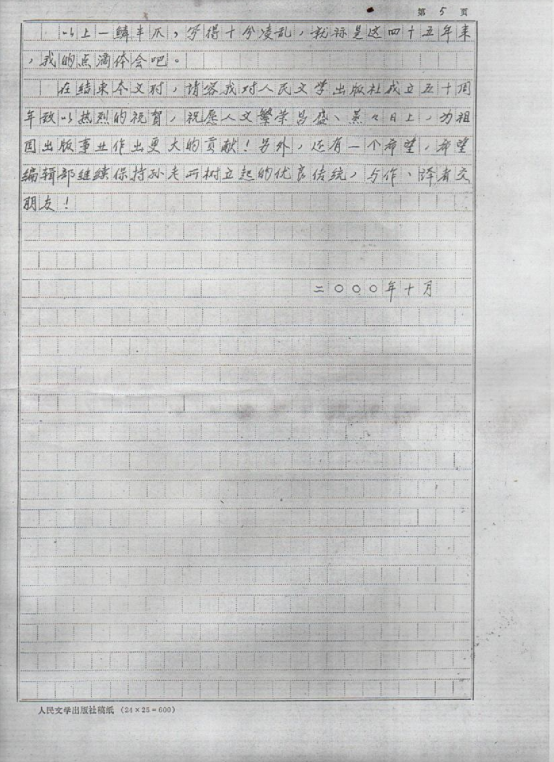 第 5 页
以上一鳞半爪，写得十分凌乱，就称是这四十五年来
，我的点滴体会吧。
在结束本文时，请容我对人民文学出版社成立五十周
年致以热烈的祝贺，祝愿人文繁荣昌盛、蒸々日上，为祖
国出版事业作出更大的贡献！另外，还有一个希望，希望
编辑部继续保持孙老所树立起的优良传统，与作、译者交
朋友！
二〇〇〇年十月
人民文学出版社稿纸（24×25＝600）